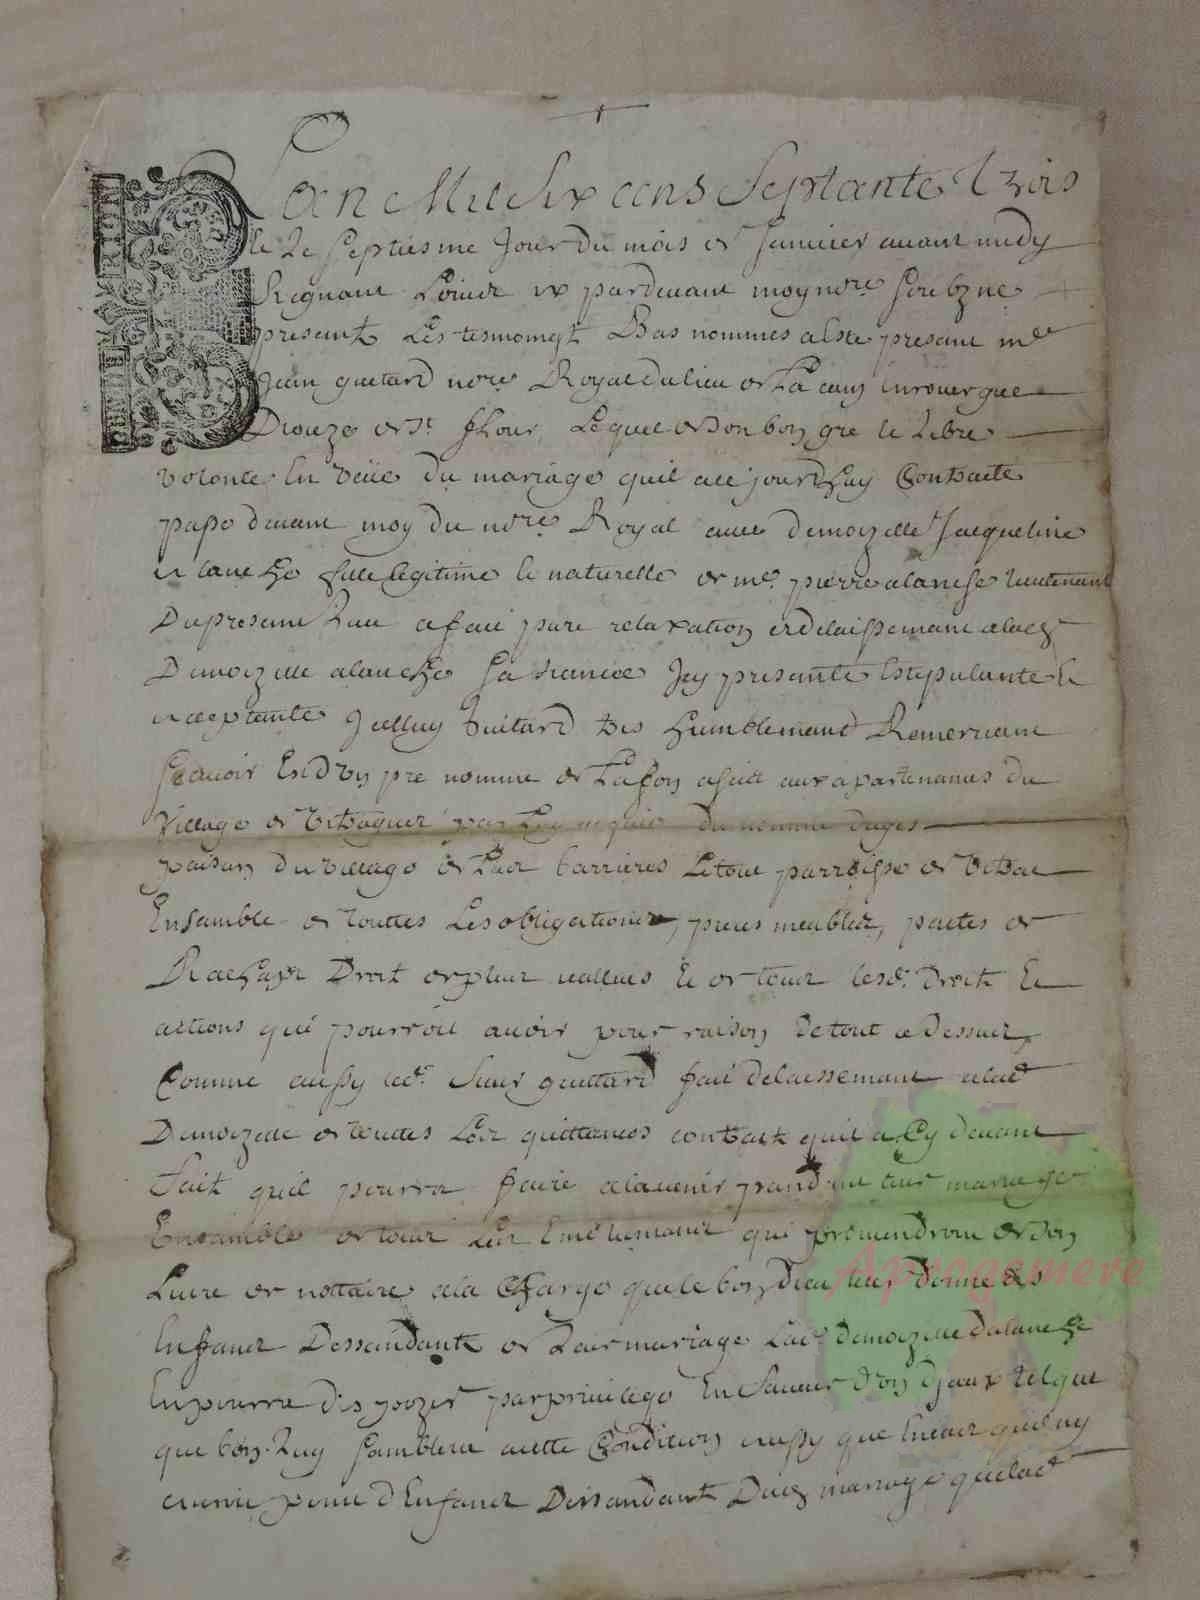 L'an Mil Six cens Septante trois
le 2e septiesme Jour du mois de Janvier avant midy
Regnant Louis par devant moy nore soubzne
presants Les tesmoingt Bas nommes a este presant me
Jean guitard nore Royal du lieu de La en rouergue
Dioueze de St flour Lequel de son bon gre & Libre
volonte En veüe du mariage quil a ce jourdhuy Contracte
passe devant moy du nore Royal avec demoizelle Jacqueline
filhe legitime & naturelle de me pierre lieutenant
Du presant Lieu a faict pure relaxation & delaissemant a lad
Demoizelle sa fiancée Icy presante Estipulante &
acceptante Icelluy Guitard tres humblemand Remerciant
Scavoir aux apartenances du
Village de par Luy acquis du nomme
paisan du village de Las barrieres Le tout parroisse de
Ensamble de touttes Les obligations, prets meubles, pactes de
Rachapt Droit de plus vallues & de tous lesd. Droits &
actions qui pourroit avoir pour raison de tout ce Dessus
Comme aussy led. Sieur guittard faict delaissemant a lad
Demoizelle de touttes Les quittances contracts quil a Cy devant
faict quil pourra faire a la venir pandant leur mariage
Ensamble de tous Les Emolumans qui proviendront de son
Livre de nottaire a la Charge que le bon Dieu leur donne des
Enfans Dessandants de Leur mariage Lad. demoizelle
En pourra dispozer par privilege En faveur d'un d'jceux telque
que bon Luy samblera a cette Condition aussy que En cas quil ny
point d'Enfans Dessandants Dud mariage que lad